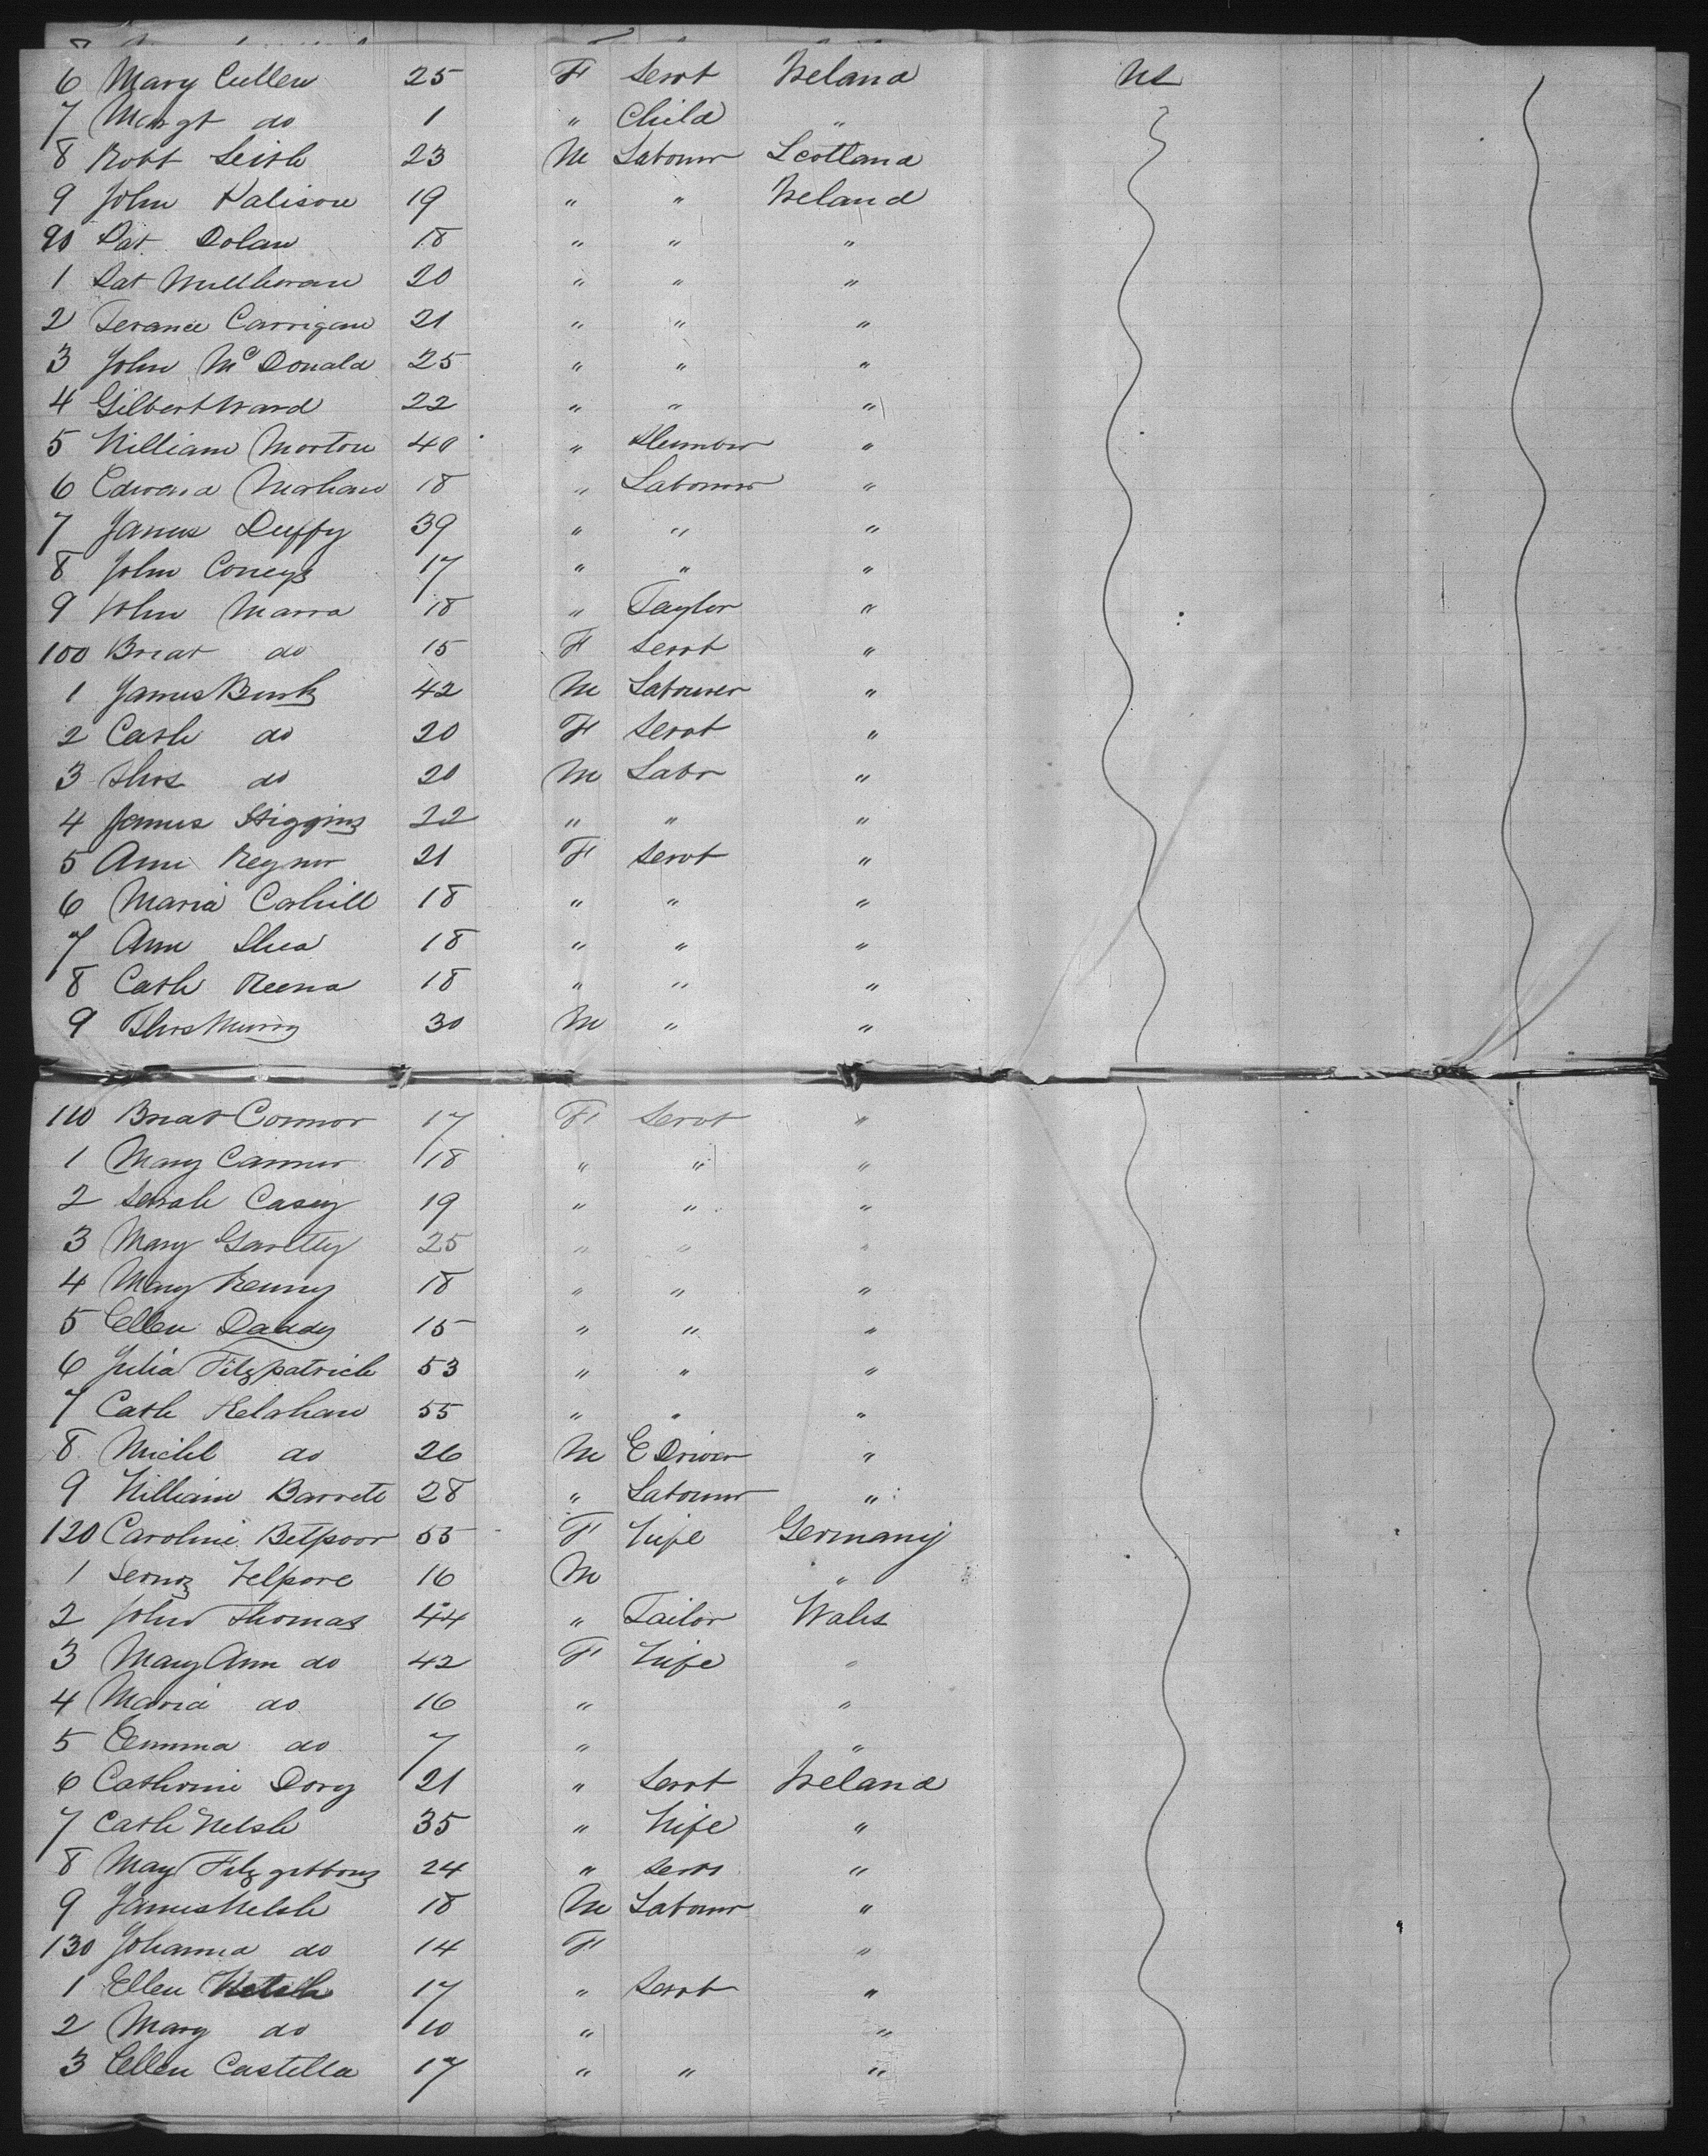 6 Mary Cullen 25 F Servt Ireland US
7 Margt do 1 " Child "
8 Robt Leith 23 M Labourr Scotland
9 John Kalison 19 " " Ireland
90 Pat Dolan 18 " " "
1 Pat Mullheran 20 " " "
2 Terance Carrigan 21 " " "
3 John McDonald 25 " " "
4 Gilbert Ward 22 " " "
5 William Morton 40 " Plumber "
6 Edward Mahan 18 " Labourer "
7 James Duffy 39 " " "
8 John Coneys 17 " " "
9 John Marra 18 " Taylor "
100 Bridt do 15 F Servt "
1 James Burk 42 M Labourer "
2 Cath do 20 F Servt "
3 Thos do 20 M Labr "
4 James Higgins 22 " " "
5 Ann Reynor 21 F Servt "
6 Maria Cahill 18 " " "
7 Ann Shea 18 " " "
8 Cath Reena 18 " " "
9 Thos Murry 30 M " "
110 Bridt Connor 17 F Servt "
1 Mary Connor 18 " " "
2 Sarah Casey 19 " " "
3 Mary Garetty 25 " " "
4 Mary Kenny 18 " " "
5 Ellen Daddy 15 " " "
6 Julia Fitzpatrick 53 " " "
7 Cath Kelahan 55 " " "
8 Michl do 26 M E Driver "
9 William Barrett 28 " Labourr "
120 Caroline Betpoor 55 F Wife Germany
1 16 M "
2 John Thomas 44 " Tailor Wales
3 Mary Ann do 42 F Wife "
4 Maria do 16 " "
5 Emma do 7 " "
6 Catherine Dory 21 " Servt Ireland
7 Cath Welsh 35 " Wife "
8 May Fitzgibbons 24 " Servt "
9 James Welsh 18 M Labourr "
130 Johanna do 14 F "
1 Ellen Welsh 17 " Servt "
2 Mary do 10 " "
3 Ellen Castella 17 " " "